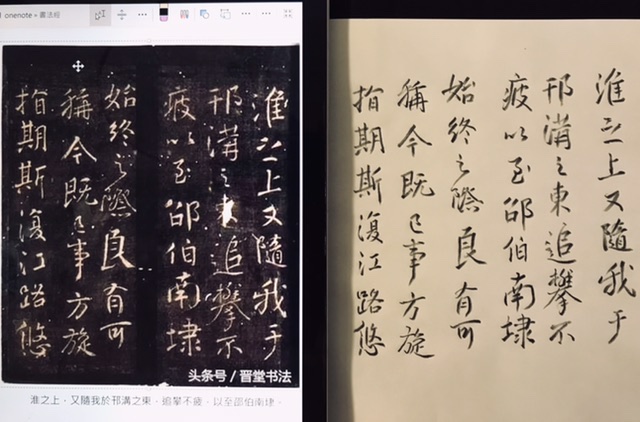 onenote • 書法經
淮之上又隨我于
邗溝之東追攀不
疲以至邵伯南埭
始終之際良有可
稱今既已事方旋
指期斯復江路悠
头条号 / 晋堂书法
淮之上，又隨我於邗溝之東，追攀不疲，以至邵伯南埭。
淮之上又隨我于
邗溝之東追攀不
疲以至邵伯南埭
始終之際良有可
稱今既已事方旋
指期斯復江路悠